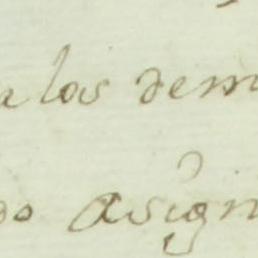 a los dem
do asign